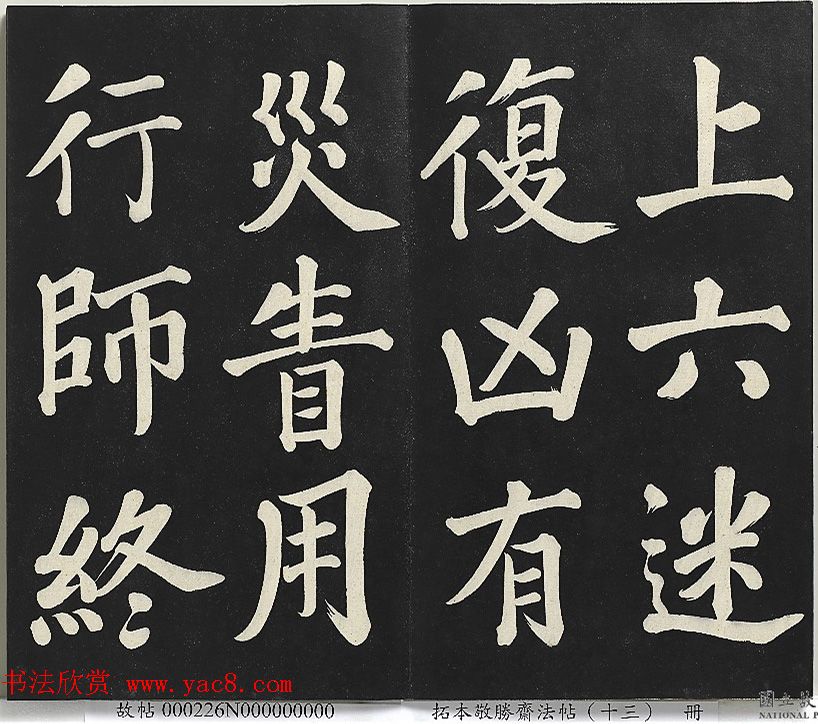 上六迷
復凶有
災眚用
行師終
书法欣赏 www.yac8.com
故帖 000226N000000000
拓本敬勝齋法帖（十三） 冊
國立故
NATIONAL P